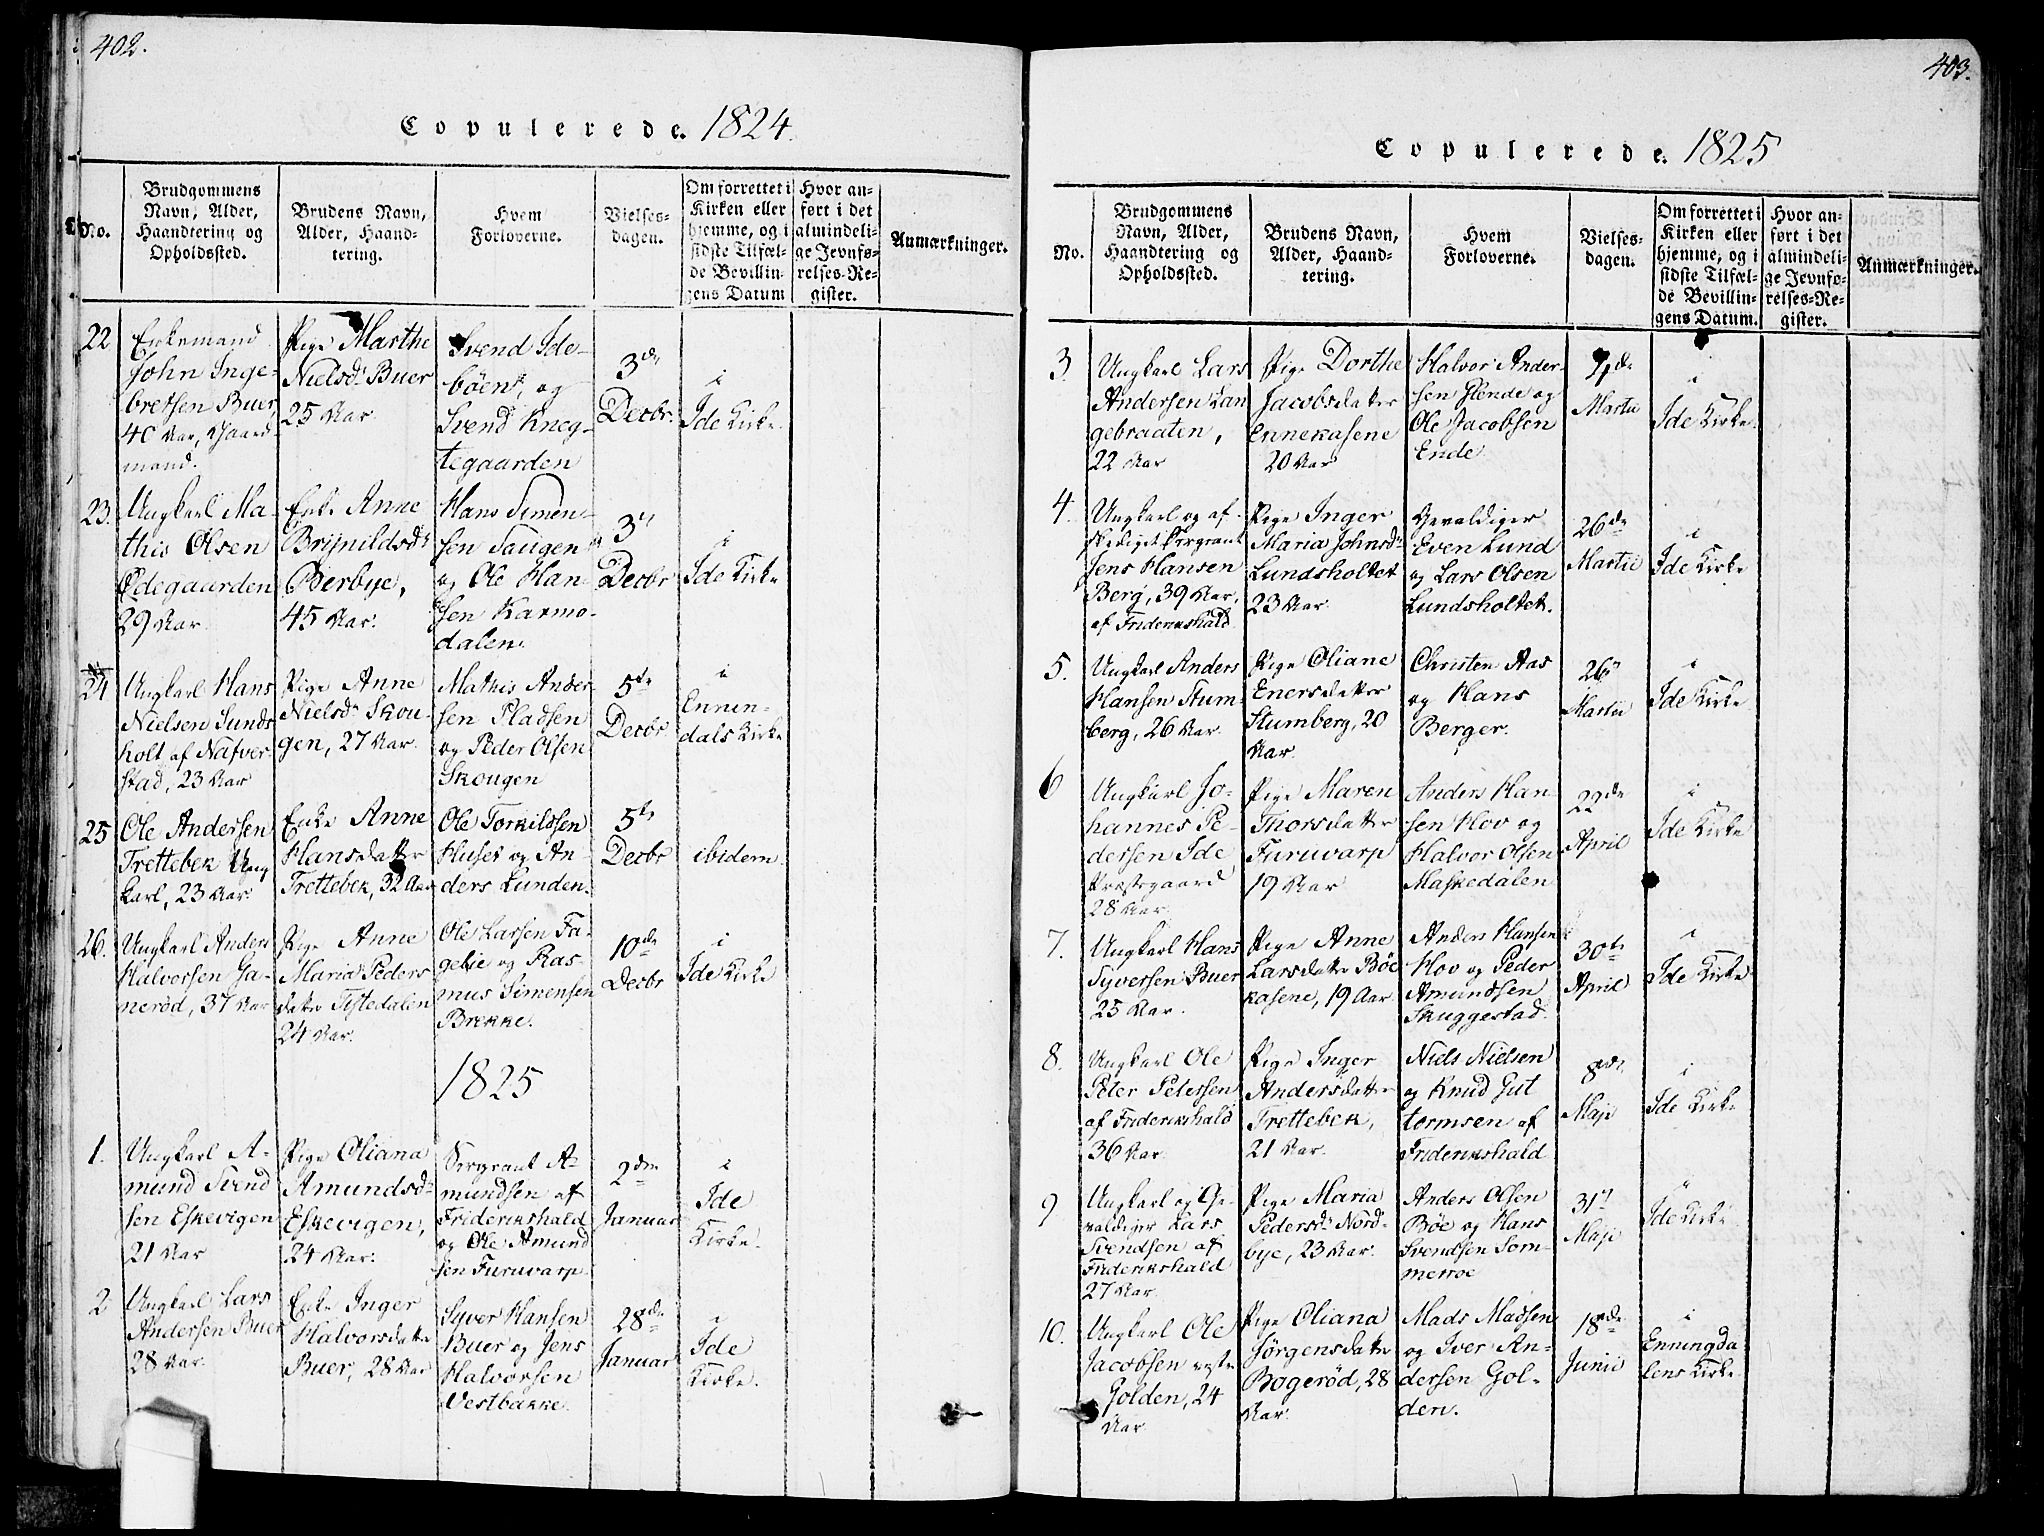 402.
Copulerede. 1824.
No.
Brudgommens
Navn, Alder,
Haandtering og
Opholdssted.
Brudens Navn,
Alder, Haand-
tering.
Hvem
Forloverne.
Vielses-
dagen.
Om forrettet i
Kirken eller
hjemme, og i
sidste Tilfæl-
de Bevillin-
gens Datum
Hvor an-
ført i det
almindeli-
ge Jevnfø-
relses-Re-
gister.
Anmærkninger.
22
Enkemand
John Inge-
bretsen Buer,
40 Aar, Gaard-
mand.
Pige Marthe
Nielsdr Buer
25 Aar
Svend Ide-
böen, og
Svend Kneg-
tegaarden
3de
Decbr.
i
Ide Kirke
23.
Ungkarl Ma-
this Olsen
Ödegaarden
29 Aar
Enke Anne
Brynildsdr
Berbye,
45 Aar.
Hans Simen-
sen Taugen
og Ole Han-
sen Karmo-
dalen.
3
Decbr
i
Ide Kirke
24
Ungkarl Hans
Nielsen Sunds
holt af Nafver
stad, 23 Aar
Pige Anne
Nielsdr Skou-
gen, 27 Aar.
Mathis Ander-
sen Pladsen
og Peder Olsen
Skougen
5te
Decbr
i
Ennin-
dals Kirke
25
Ole Andersen
Trettebek Ung
karl, 23 Aar.
Enke Anne
Hansdatter
Trettebek, 32 Aar
Ole Torkildsen
Huset og An-
ders Lunden.
5te
Decbr
ibidem.
26.
Ungkarl Anders
Halvorsen Ga-
neröd, 37 Aar
Pige Anne
Maria Peders
datter Tistedalen
24 Aar.
Ole Larsen Fa-
gelie og Ras
mus Simensen
Brekke.
10de
Decbr
i
Ide Kirke
1825
1.
Ungkarl A-
mund Svend
sen Eskevigen
21 Aar
Pige Oliana
Amundsdr
Eskevigen,
24 Aar.
Sergeant A-
mundsen af
Friderikshald
og Ole Amund
sen Furuvarp.
2den
Januar
i
Ide
Kirke.
2
Ungkarl Lars
Andersen Buer
28 Aar.
Enke Inger
Halvorsdatter
Buer, 28 Aar
Syver Hansen
Buer og Jens
Halvorsen
Vestbakke.
28de
Januar
i
Ide
Kirke.
403.
Copulerede. 1825
No.
Brudgommens
Navn, Alder,
Haandtering og
Opholdssted.
Brudens Navn,
Alder, Haand-
tering.
Hvem
Forloverne.
Vielses-
dagen.
Om forrettet i
Kirken eller
hjemme, og i
sidste Tilfæl-
de Bevillin-
gens Datum.
Hvor an-
ført i det
almindeli-
ge Jevnfø-
relses-Re-
gister.
Anmærkninger.
3
Ungkarl Lars
Andersen Lan
gebraaten,
22 Aar
Pige Dorthe
Jacobsdatter
Ennekasene
20 Aar
Halvor Ander-
sen Hende og
Ole Jacobsen
Ende
Martii
i
Ide Kirke.
4.
Ungkarl og af-
skediget Sergeant
Jens Hansen
Berg, 39 Aar,
af Friderikshald
Pige Inger
Maria Johnsdr
Lundsholtet
23 Aar.
Gevaldiger
Even Lund
og Lars Olsen
Lundsholtet.
26de
Martii
i
Ide Kirke
5.
Ungkarl Anders
Hansen Stum-
berg, 26 Aar.
Pige Oliane
Enersdatter
Stumberg, 20
Aar.
Christen Aas
og Hans
Berger.
26
Martii
i
Ide Kirke
6
Ungkarl Jo-
hannes Pe-
dersen Ide
Præstegaard
28 Aar.
Pige Maren
Thorsdatter
Furuvarp
19 Aar
Anders Han
sen Hov og
Halvor Olsen
Maskedalen
22de
April
i
Ide Kirke
7.
Ungkarl Hans
Syversen Buer
25 Aar.
Pige Anne
Larsdatter Böe
kasene, 19 Aar
Anders Hansen
Hov og Peder
Amundsen
Skuggestad.
30te
April
i
Ide Kirke
8.
Ungkarl Ole
Peter Petersen
af Friderikshald
36 Aar.
Pige Inger
Andersdatter
Trettebek,
21 Aar.
Niels Nielsen
og Knud Gut
tormsen af
Friderikshald
8de
Maji
i
Ide Kirke
9
Ungkarl og Ge-
valdiger Lars
Svendsen af
Friderikshald
27 Aar.
Pige Maria
Pedersdr Nord-
bye, 23 Aar.
Anders Olsen
Böe og Hans
Svendsen Som-
merroe
31
Maji
Ide Kirke
10.
Ungkarl Ole
Jacobsen
Golden, 24
Aar
Pige Oliana
Jörgensdatter
Bogeröd, 28
Aar.
Mads Madsen
og Iver An-
dersen Gol-
den.
18de
Junii
i
Enningda-
lens Kirke